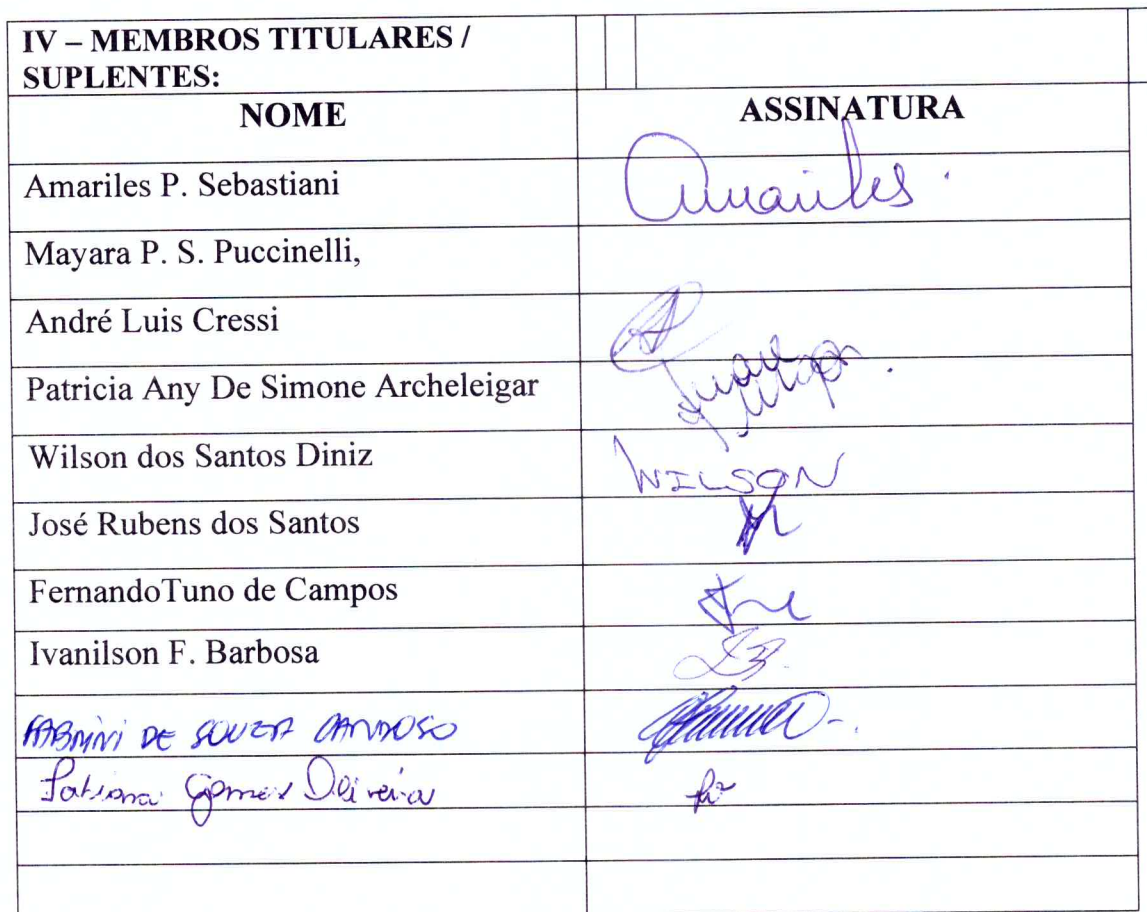 IV – MEMBROS TITULARES /
SUPLENTES:
NOME ASSINATURA
Amariles P. Sebastiani Amariles.
Mayara P. S. Puccinelli,
André Luis Cressi
Patricia Any De Simone Archeleigar
Wilson dos Santos Diniz WILSON
José Rubens dos Santos
FernandoTuno de Campos
Ivanilson F. Barbosa
DE SOUZA CARDOSO
Tatiana Gomes Oliveira